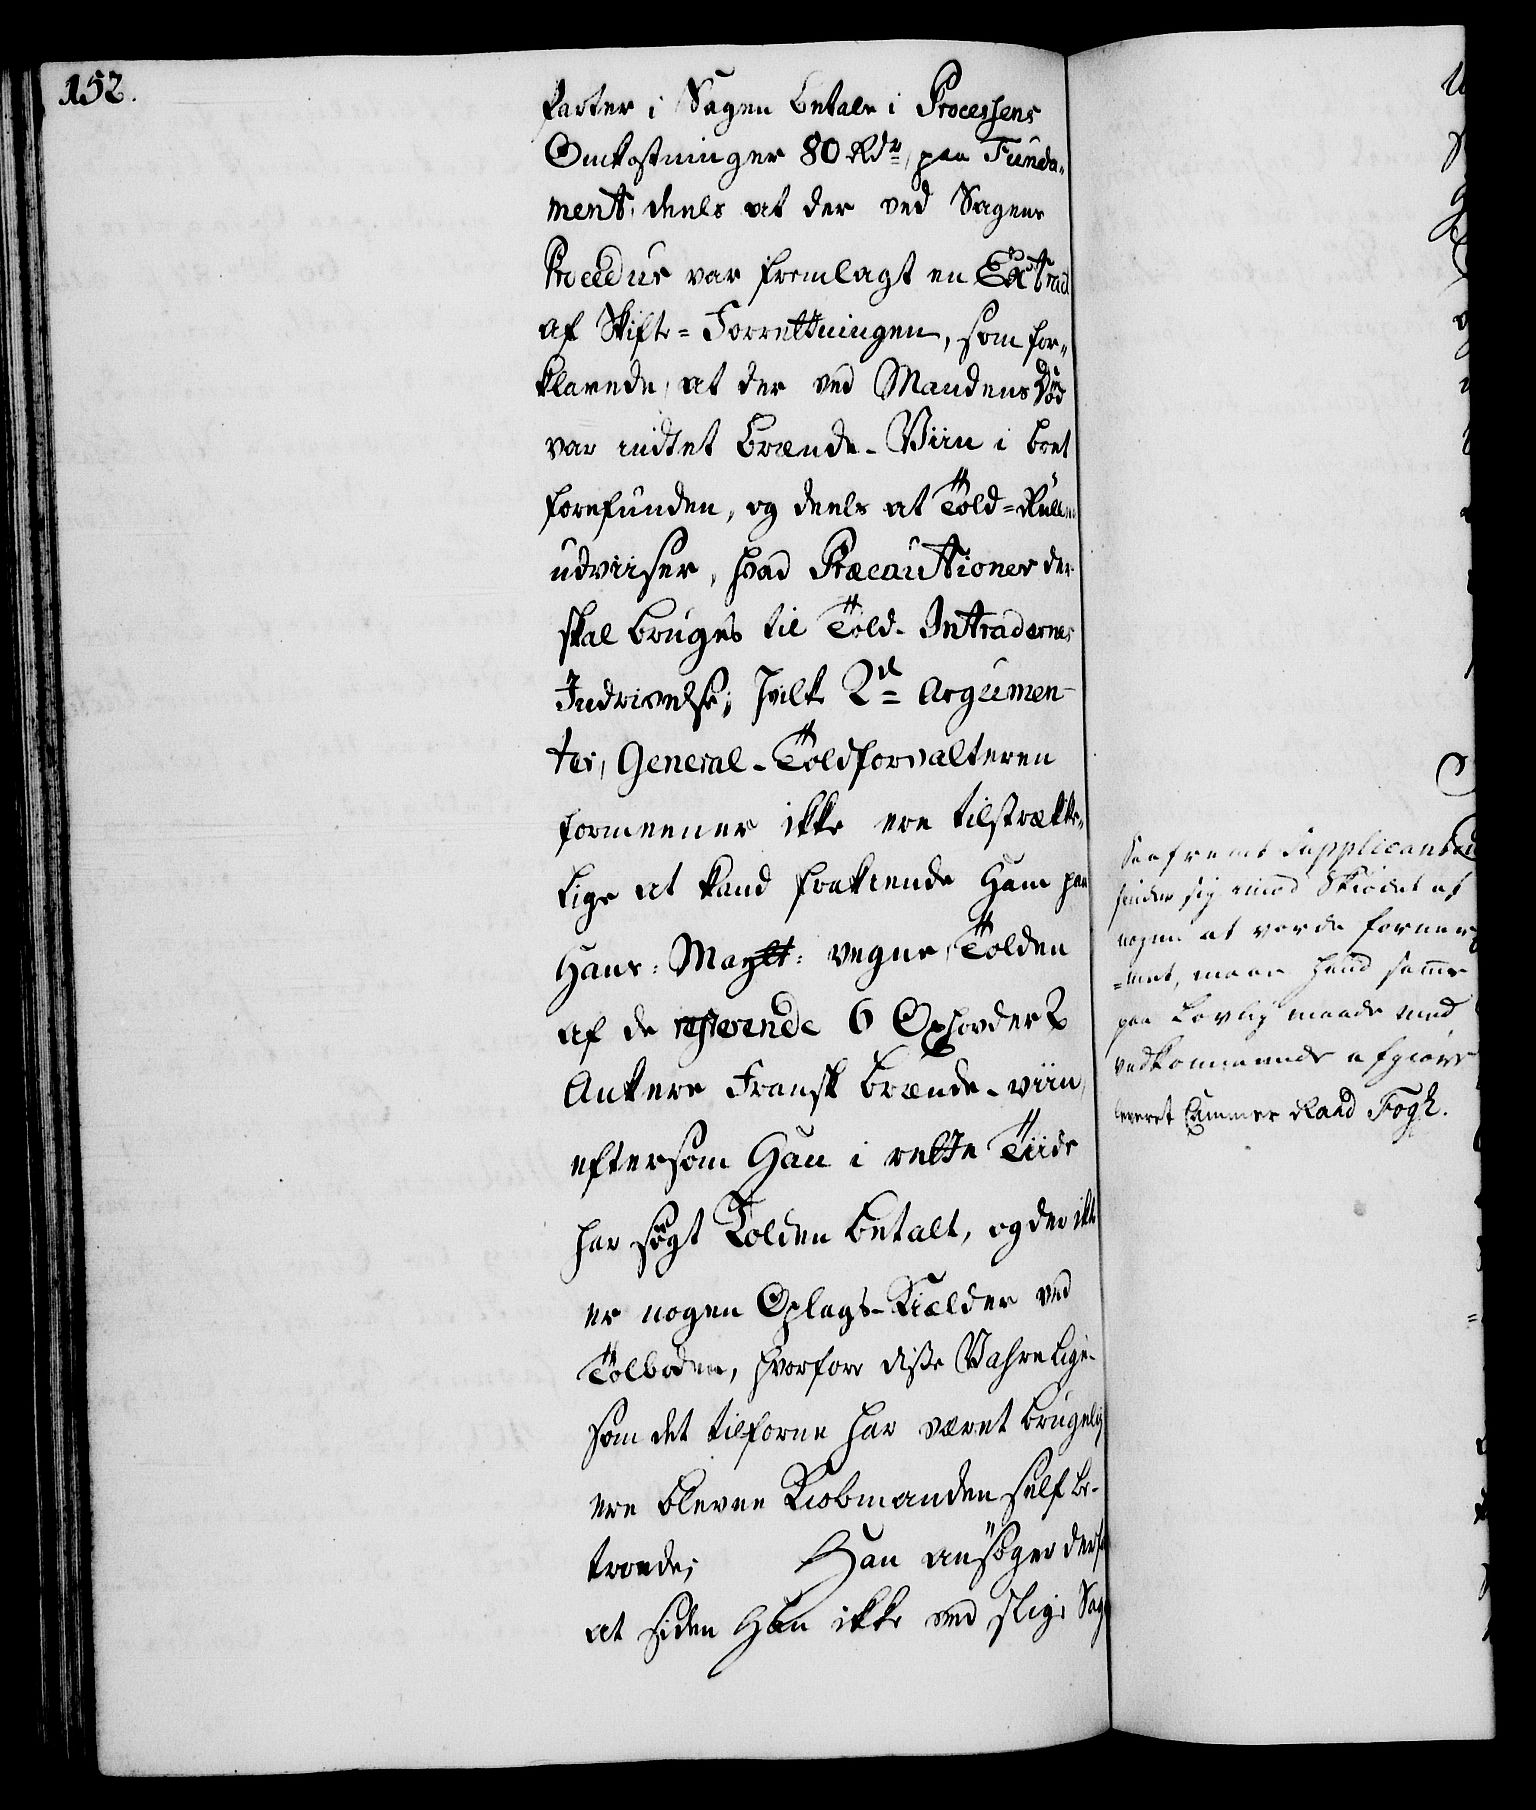 152.
Parter i Sagen betale i Processens
Omkostninger 80 Rdr, paa Funda-
ment, deels at der ved Sagens
Procedur var fremlagt en Extract
af Skifte-Forrettningen, som for-
klarede, at der ved Mandens Død
var intet Brænde-Viin i boet
forefunden, og deels at Told-Rullen
udviiser, hvad Præcautioner der
skal bruges til Told-Intradernes
Indrivelse; hvilke 2de Argumen-
ter, General-Toldforvalteren
formeener ikke ere tilstrække-
lige at kand frakiende Ham paa
Hans Maytt: vegne, Tolden
af de resterende 6 Oxhovder 2
Ankere Fransk brænde-viin,
eftersom Han i rette Tiide
har søgt Tolden betalt, og der ikke
er nogen Oplags-Kielder ved
Tolboden, hvorfore disse Vahre lige-
som det tilforne har været brugelig
ere blevne Kiøbmanden self be-
troede; Han ansøger derfor
at siden Han ikke ved slige Sag
Saafremt Supplicanten
finder sig imod Skiødet af
nogen at vorde fornær-
-met, maae hand samme
paa Lovlig maade med
vedkommende afgiøre
leveret Cammer Raad Fogh.